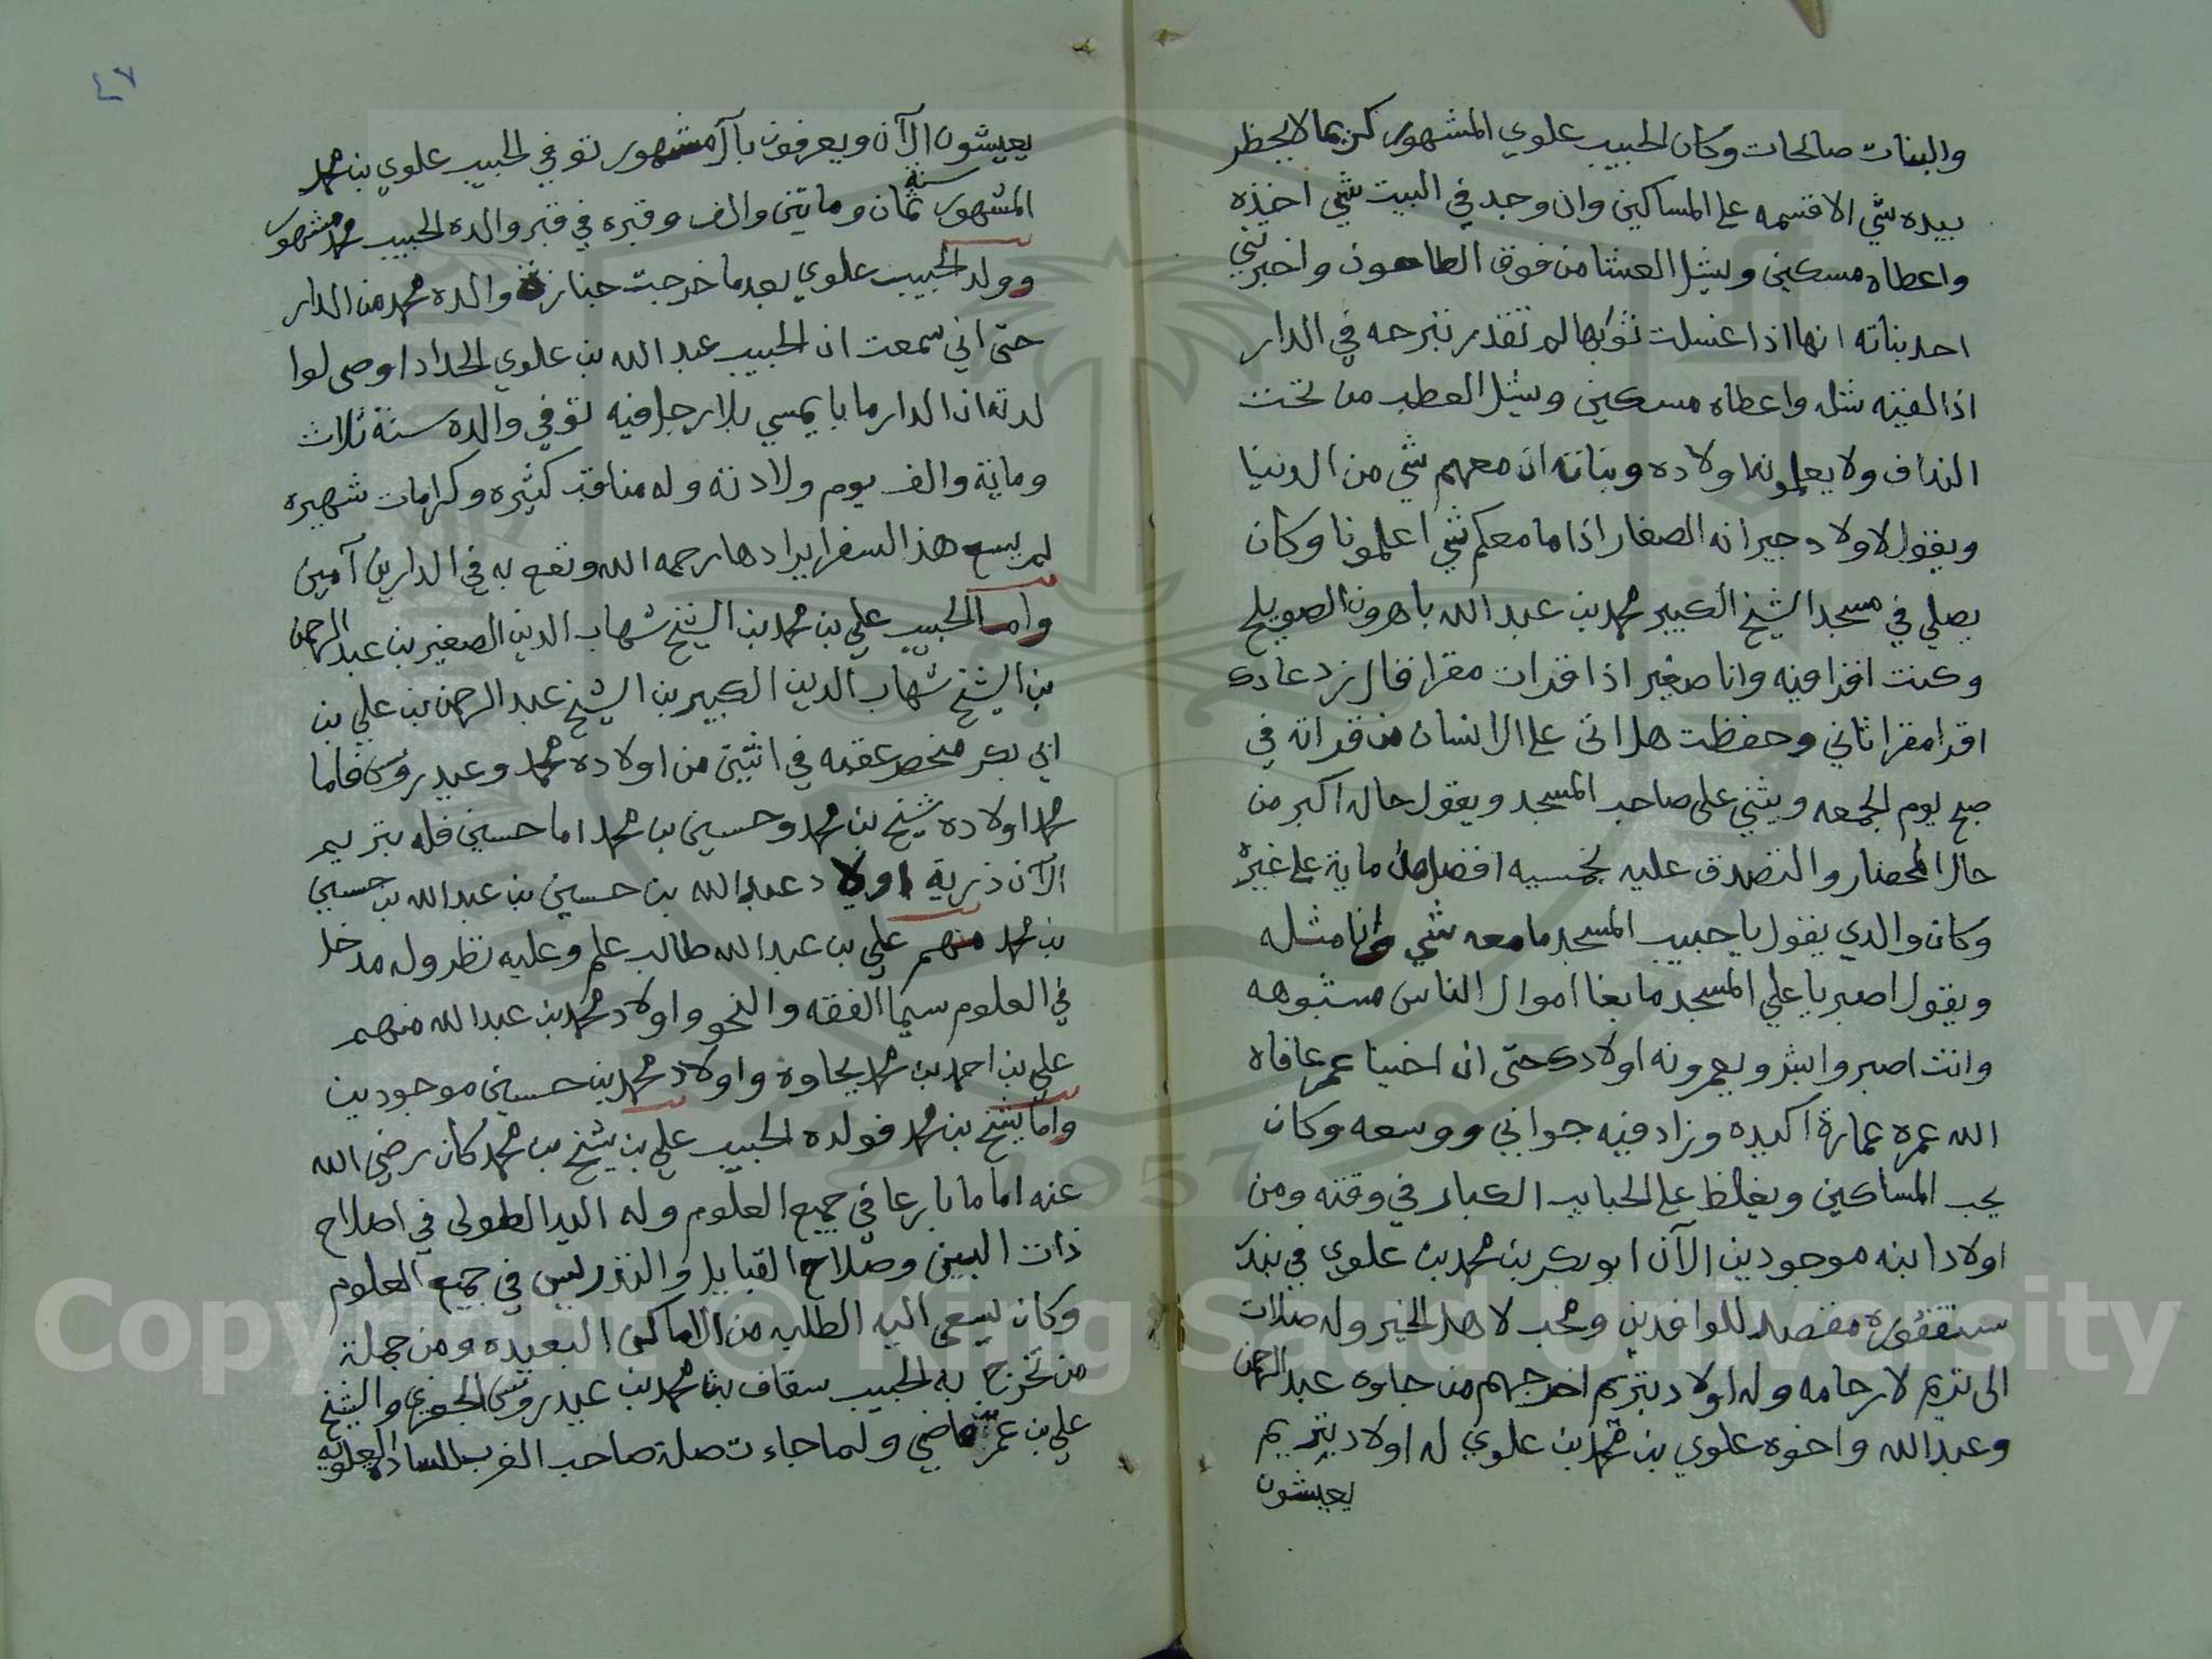 والبنات صالحات وكان الحبيب علوي المشهور كريما لا يحظر
بيده شي الا قسمه على المساكين وان وجد في البيت شي اخذه
واعطاه مسكين ويشل العشا من فوق الطاحون واخبرتني
احد بناته انها اذا غسلت ثوبها لم تقدر تبرحه في الدار
اذا لقيه شله واعطاه مسكين ويشل العطب من تحت
النداف ولا يعلمون اولاده وبناته ان معهم شي من الدنيا
ويقول لاولاد جيرانه الصغار اذا ما معكم شي اعلمونا وكان
يصلي في مسجد الشيخ الكبير محمد بن عبد الله باهرون الصويلح
وكنت اقرا فيه وانا صغير اذا قرات مقرا قال زد عادك
اقرا مقرا ثاني وحفظت هل اتى على الانسان من قراته في
صبح يوم الجمعه ويثني على صاحب المسجد ويقول حاله اكبر من
حال المحضار والتصدق عليه بخمسيه افضل من ماية على غيره
وكان والدي يقول يا حبيب المسجد ما معه شي وانا مثله
ويقول اصبر يا علي المسجد ما بغا اموال الناس مشبوهه
وانت اصبر وابشر ويعمرونه اولادك حتى ان اخينا عمر عافاه
الله عمره عمارة اكيده وزاد فيه جوابي ووسعه وكان
يحب المساكين ويغلظ على الحبايب الكبار في وقته ومن
اولاد ابنه موجودين الآن ابو بكر بن محمد بن علوي في بندر
سنقفوره مقصد للوافدين ومحب لاهل الخير وله صلات
الى تريم لارحامه وله اولاد بتريم اخرجهم من جاوه عبد الرحمن
وعبد الله واخوه علوي بن محمد بن علوي له اولاد بتريم
يعيشون
٤٧
يعيشون الآن ويعرفون بآل مشهور توفي الحبيب علوي بن محمد
المشهور سنة ثمان ومايتين والف وقبره في قبر والده الحبيب محمد مشهور
وولد الحبيب علوي بعد ما خرجت جنازة والده محمد من الدار
حتى اني سمعت ان الحبيب عبد الله بن علوي الحداد اوصى لوا
لدته ان الدار ما با يمسي بلا رجل فيه توفي والده سنة ثلاث
وماية والف يوم ولادته وله مناقب كثيره وكرامات شهيره
لم يسع هذا السفر ايرادها رحمه الله ونفع به في الدارين آمين
واما الحبيب علي بن محمد بن الشيخ شهاب الدين الصغير بن عبد الرحمن
بن الشيخ شهاب الدين الكبير بن الشيخ عبد الرحمن بن علي بن
ابي بكر منحصر عقبه في اثنين من اولاده محمد وعيدروس فاما
محمد اولاده شيخ بن محمد وحسين بن محمد اما حسين فله بتريم
الآن ذرية اولاد عبد الله بن حسين بن عبد الله بن حسين
بن محمد منهم علي بن عبد الله طالب علم وعليه نظر وله مدخل
في العلوم سيما الفقه والنحو واولاد محمد بن عبد الله منهم
علي بن احمد بن محمد بجاوة واولاد محمد بن حسين موجودين
واما شيخ بن محمد فولده الحبيب علي بن شيخ بن محمد كان رضي الله
عنه اماما بارعا في جميع العلوم وله اليد الطولى في اصلاح
ذات البين وصلاح القبايل والتدريس في جميع العلوم
وكان يسعى اليه الطلبه من الاماكن البعيده ومن جملة
من تخرج به الحبيب سقاف بن محمد بن عيدروس الجفري والشيخ
علي بن عمر قاضي ولما جاءت صلة صاحب الغرب للساده العلويه
Copyright © King Saud University
1957